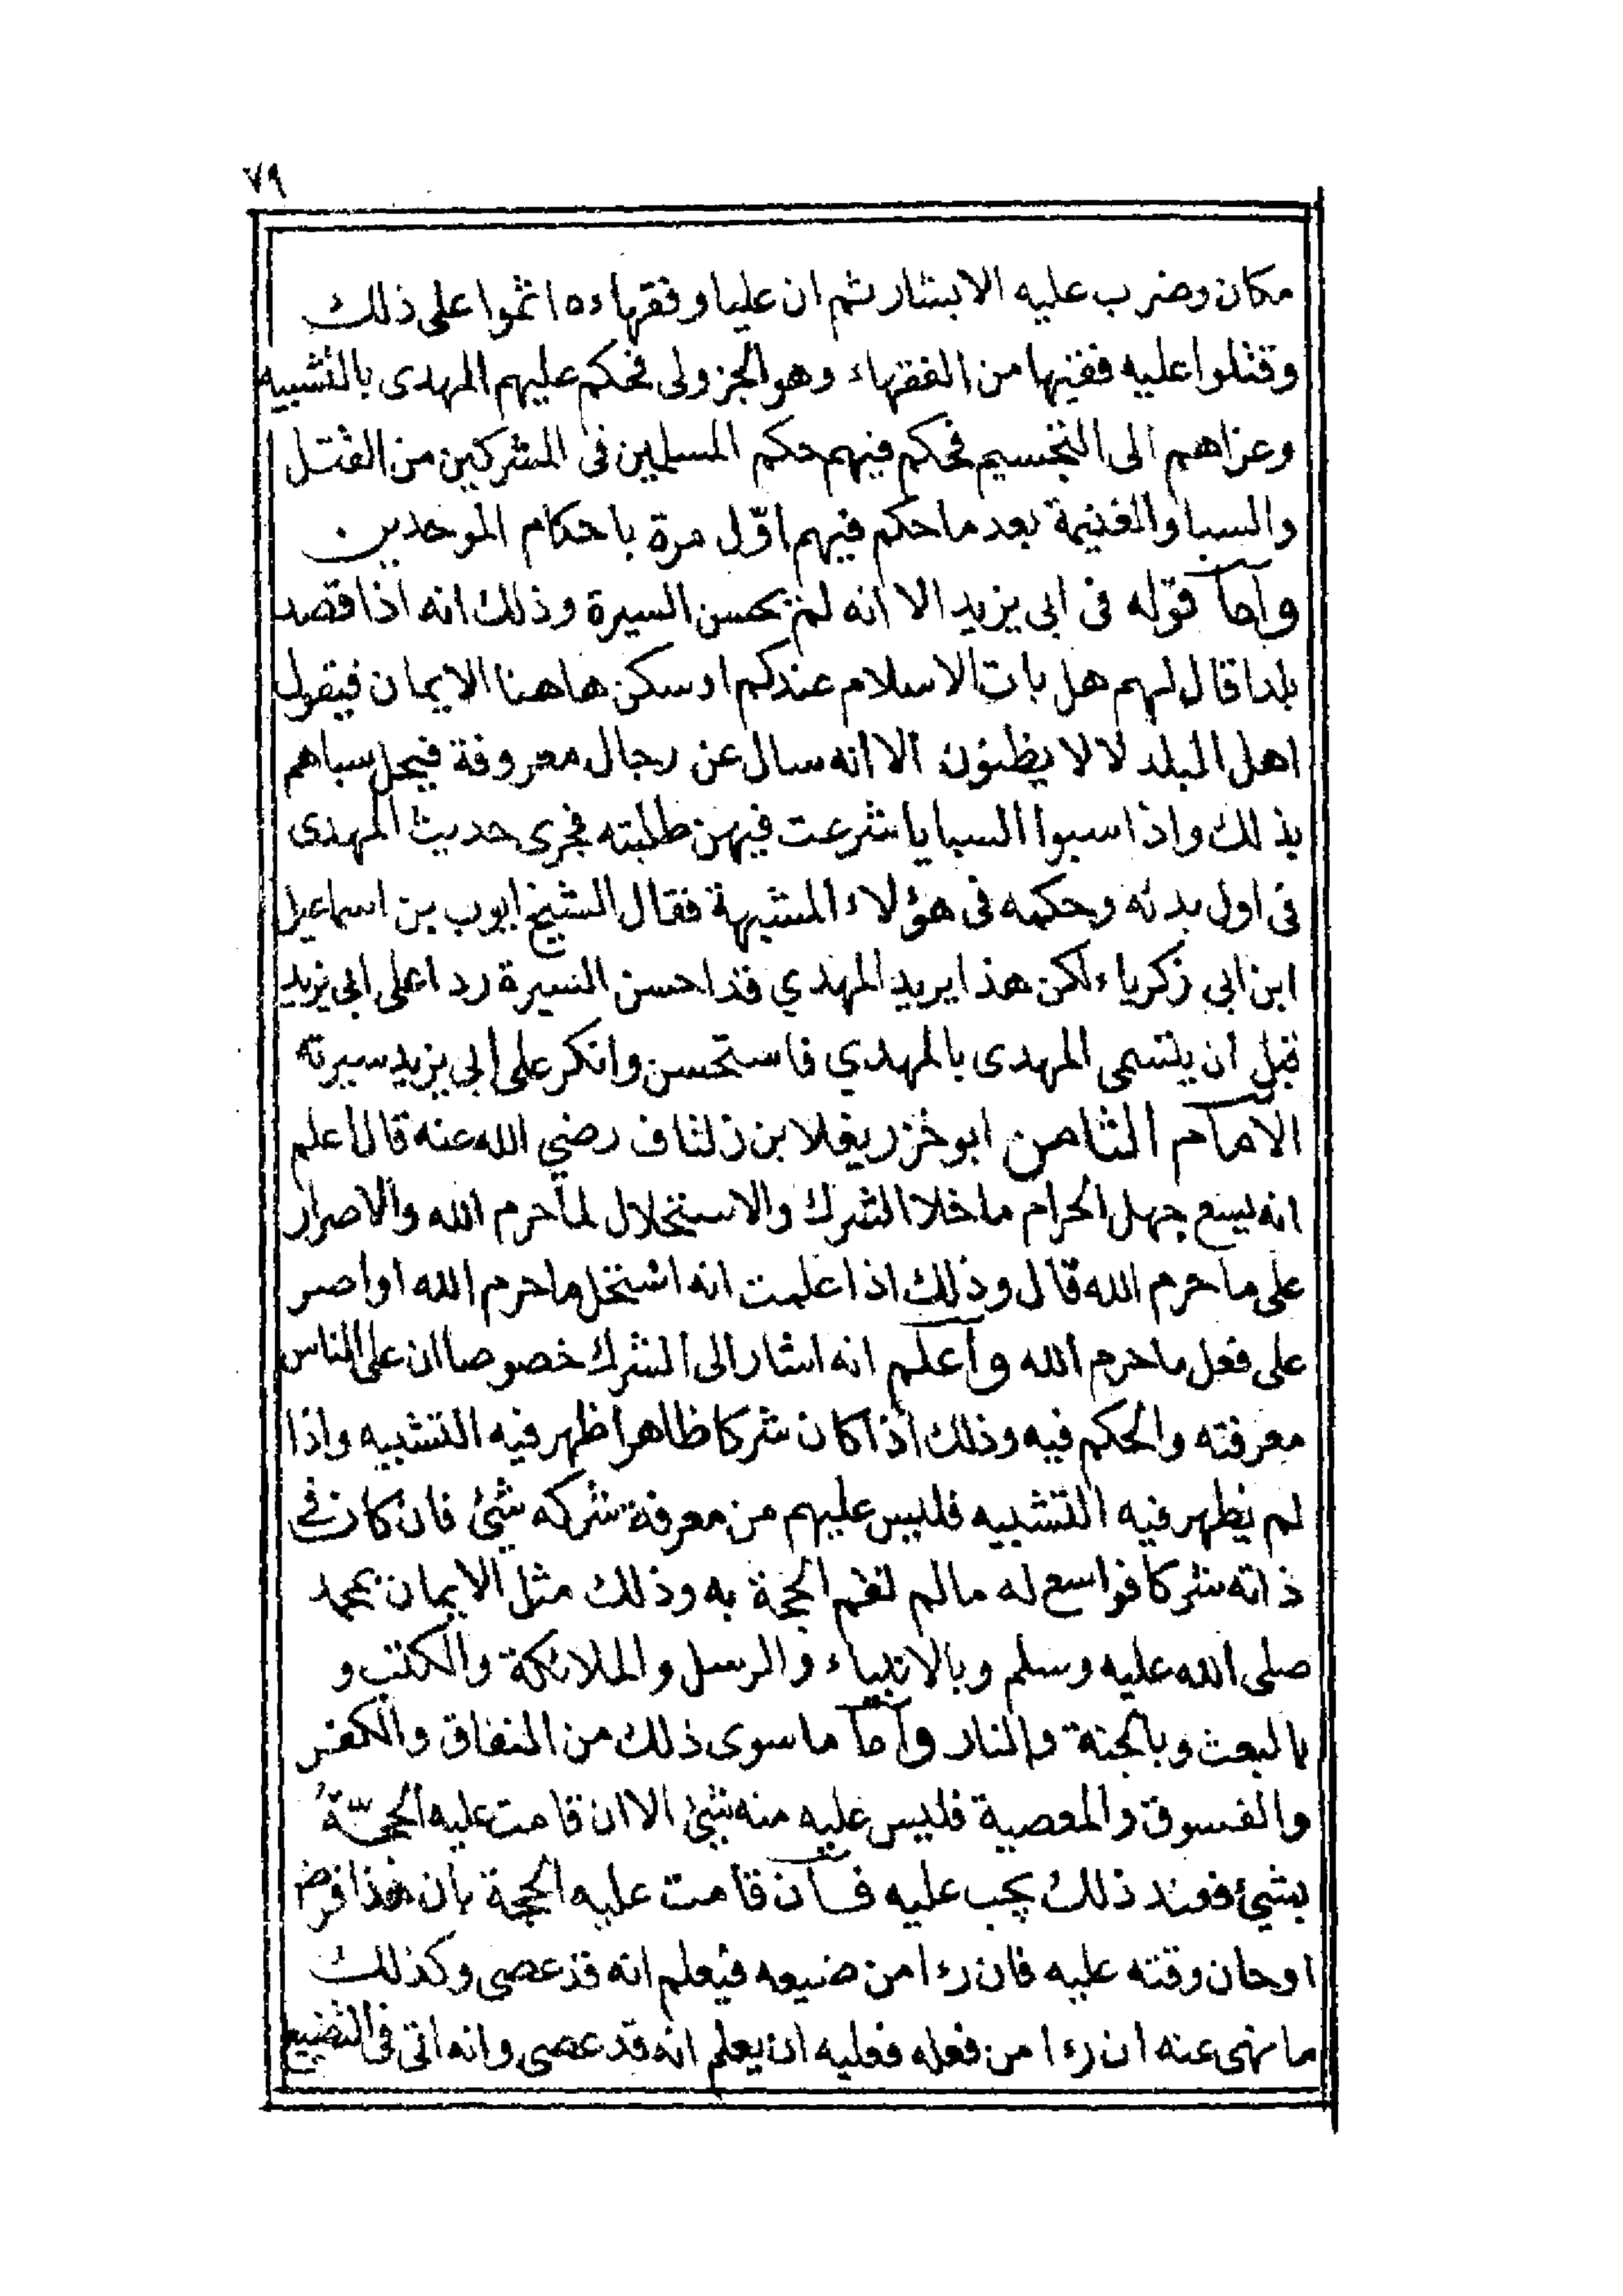 ٧٩
مكان وضرب عليه الابشار ثم ان عليا وفقهاءه اثموا على ذلك
وقتلوا عليه فقيها من الفقهاء وهو الجزولى فحكم عليهم المهدى بالتشبيه
وعزاهم الى التجسيم فحكم فيهم حكم المسلمين فى المشركين من القتل
والسبا والغنيمة بعد ما حكم فيهم اوّل مرة باحكام الموحدين
وأما قوله فى ابى يزيد الا انه لم يحسن السيرة وذلك انه اذا قصد
بلدا قال لهم هل بات الاسلام عندكم او سكن هاهنا الايمان فيقول
اهل البلد لا لا يظنون الا انه سال عن رجال معروفة فيحل سباهم
بذلك واذا سبوا السبايا شرعت فيهن طلبته فجرى حديث المهدى
فى اول بدئه وحكمه فى هؤلاء المشبهة فقال الشيخ ايوب بن اسماعيل
ابن ابي زكرياء لكن هذا يريد المهدي قد احسن السيرة ردا على ابى يزيد
قبل ان يتسمى المهدى بالمهدي فاستحسن وانكر على ابي يزيد سيرته
الامام الثامن ابو خزر يغلا بن زلتاف رضي الله عنه قال اعلم
انه يسع جهل الحرام ما خلا الشرك والاستحلال لما حرم الله والاصرار
على ما حرم الله قال وذلك اذا علمت انه استحل ما حرم الله او اصر
على فعل ما حرم الله وأعلم انه اشار الى الشرك خصوصا ان على الناس
معرفته والحكم فيه وذلك اذا كان شركا ظاهرا ظهر فيه التشبيه واذا
لم يظهر فيه التشبيه فليس عليهم من معرفة شركه شئ فان كان فى
ذاته شركا فواسع له مالم تقم الحجة به وذلك مثل الايمان بمحمد
صلى الله عليه وسلم وبالانبياء والرسل والملائكة والكتب و
بالبعث وبالجنة والنار وأما ما سوى ذلك من النفاق والكفر
والفسوق والمعصية فليس عليه منه شئ الا ان قامت عليه الحجّة
بشئ فعند ذلك يجب عليه فان قامت عليه الحجة بان هذا فرض
او حان وقته عليه فان رءا من ضيعه فيعلم انه قد عصى وكذلك
ما نهى عنه ان رءا من فعله فعليه ان يعلم انه قد عصى وانه اتى فى التضييع